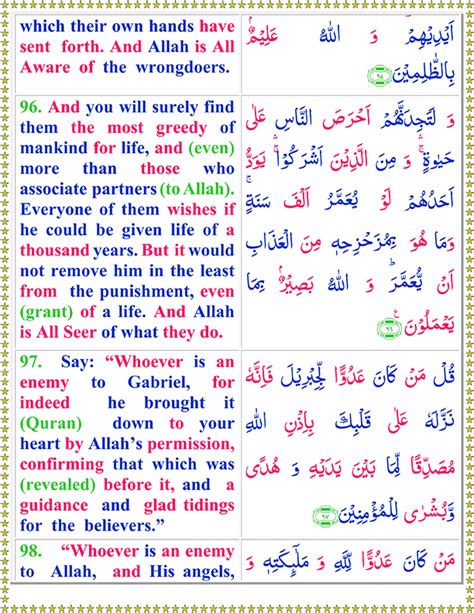 which their own hands have
sent forth. And Allah is All
Aware of the wrongdoers.
اَيْدِيْهِمْ وَ اللّٰهُ عَلِيْمٌۢ
بِالظّٰلِمِيْنَ ٩٥
96. And you will surely find
them the most greedy of
mankind for life, and (even)
more than those who
associate partners (to Allah).
Everyone of them wishes if
he could be given life of a
thousand years. But it would
not remove him in the least
from the punishment, even
(grant) of a life. And Allah
is All Seer of what they do.
وَ لَتَجِدَنَّهُمْ اَحْرَصَ النَّاسِ عَلٰى
حَيٰوةٍ ۛۚ وَ مِنَ الَّذِيْنَ اَشْرَكُوْا ۛۚ يَوَدُّ
اَحَدُهُمْ لَوْ يُعَمَّرُ اَلْفَ سَنَةٍ ۚ
وَمَا هُوَ بِمُزَحْزِحِهٖ مِنَ الْعَذَابِ
اَنْ يُّعَمَّرَ ؕ وَ اللّٰهُ بَصِيْرٌۢ بِمَا
يَعْمَلُوْنَ ٩٦
97. Say: “Whoever is an
enemy to Gabriel, for
indeed he brought it
(Quran) down to your
heart by Allah’s permission,
confirming that which was
(revealed) before it, and a
guidance and glad tidings
for the believers.”
قُلْ مَنْ كَانَ عَدُوًّا لِّجِبْرِيْلَ فَاِنَّهٗ
نَزَّلَهٗ عَلٰى قَلْبِكَ بِاِذْنِ اللّٰهِ
مُصَدِّقًا لِّمَا بَيْنَ يَدَيْهِ وَ هُدًى
وَّبُشْرٰى لِلْمُؤْمِنِيْنَ ٩٧
98. “Whoever is an enemy
to Allah, and His angels,
مَنْ كَانَ عَدُوًّا لِّلّٰهِ وَ مَلٰٓئِكَتِهٖ وَ